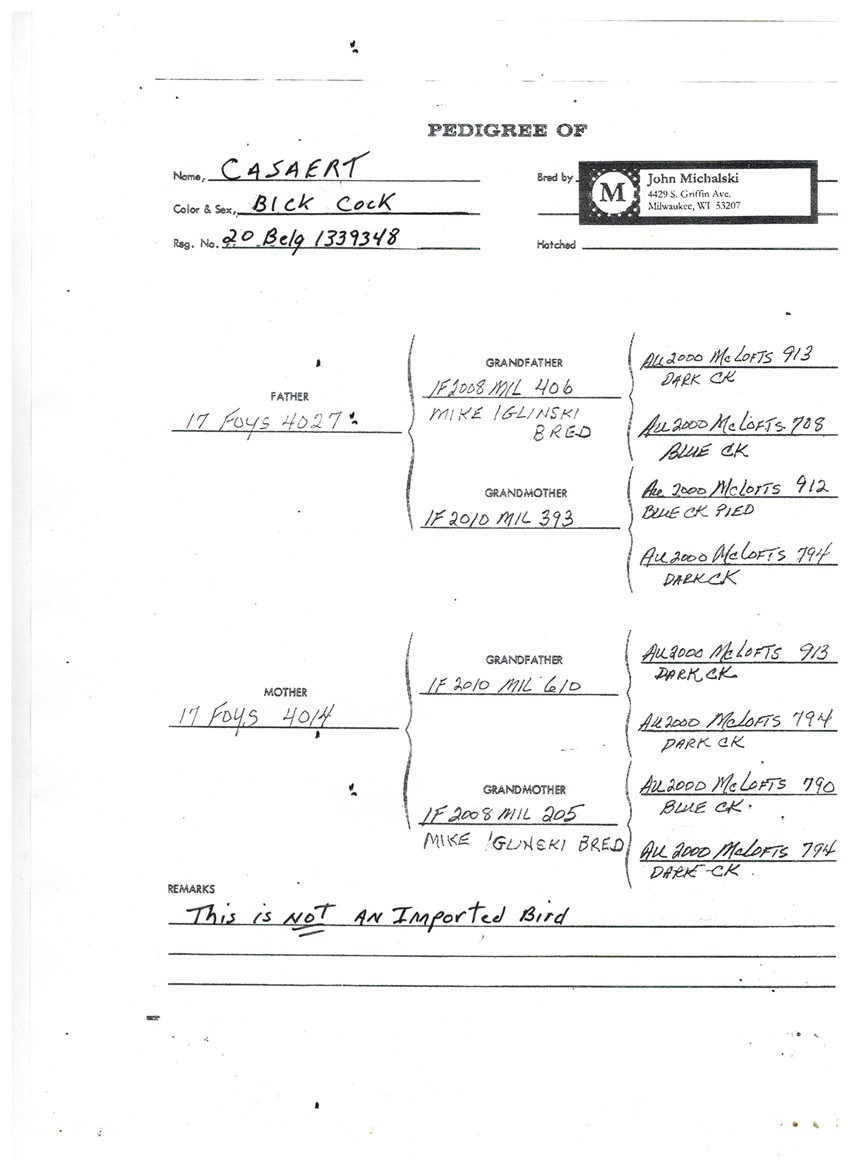 PEDIGREE OF
Name, CASAERT
Color & Sex, Blck Cock
Reg. No. 20 Belg 1339348
Bred by
M
John Michalski
4429 S. Griffin Ave.
Milwaukee, WI 53207
Hatched
FATHER
17 Foys 4027
GRANDFATHER
IF 2008 MIL 406
MIKE IGLINSKI
BRED
AU 2000 McLOFTS 913
DARK CK
AU 2000 McLOFTS 708
BLUE CK
GRANDMOTHER
IF 2010 MIL 393
AU 2000 McLOFTS 912
BLUE CK PIED
AU 2000 McLOFTS 794
DARK CK
MOTHER
17 FOYS 4014
GRANDFATHER
IF 2010 MIL 610
AU 2000 McLOFTS 913
DARK CK
AU 2000 McLOFTS 794
DARK CK
GRANDMOTHER
IF 2008 MIL 205
MIKE IGLINSKI BRED
AU 2000 McLOFTS 790
BLUE CK
AU 2000 McLOFTS 794
DARK CK
REMARKS
This is NOT AN Imported Bird